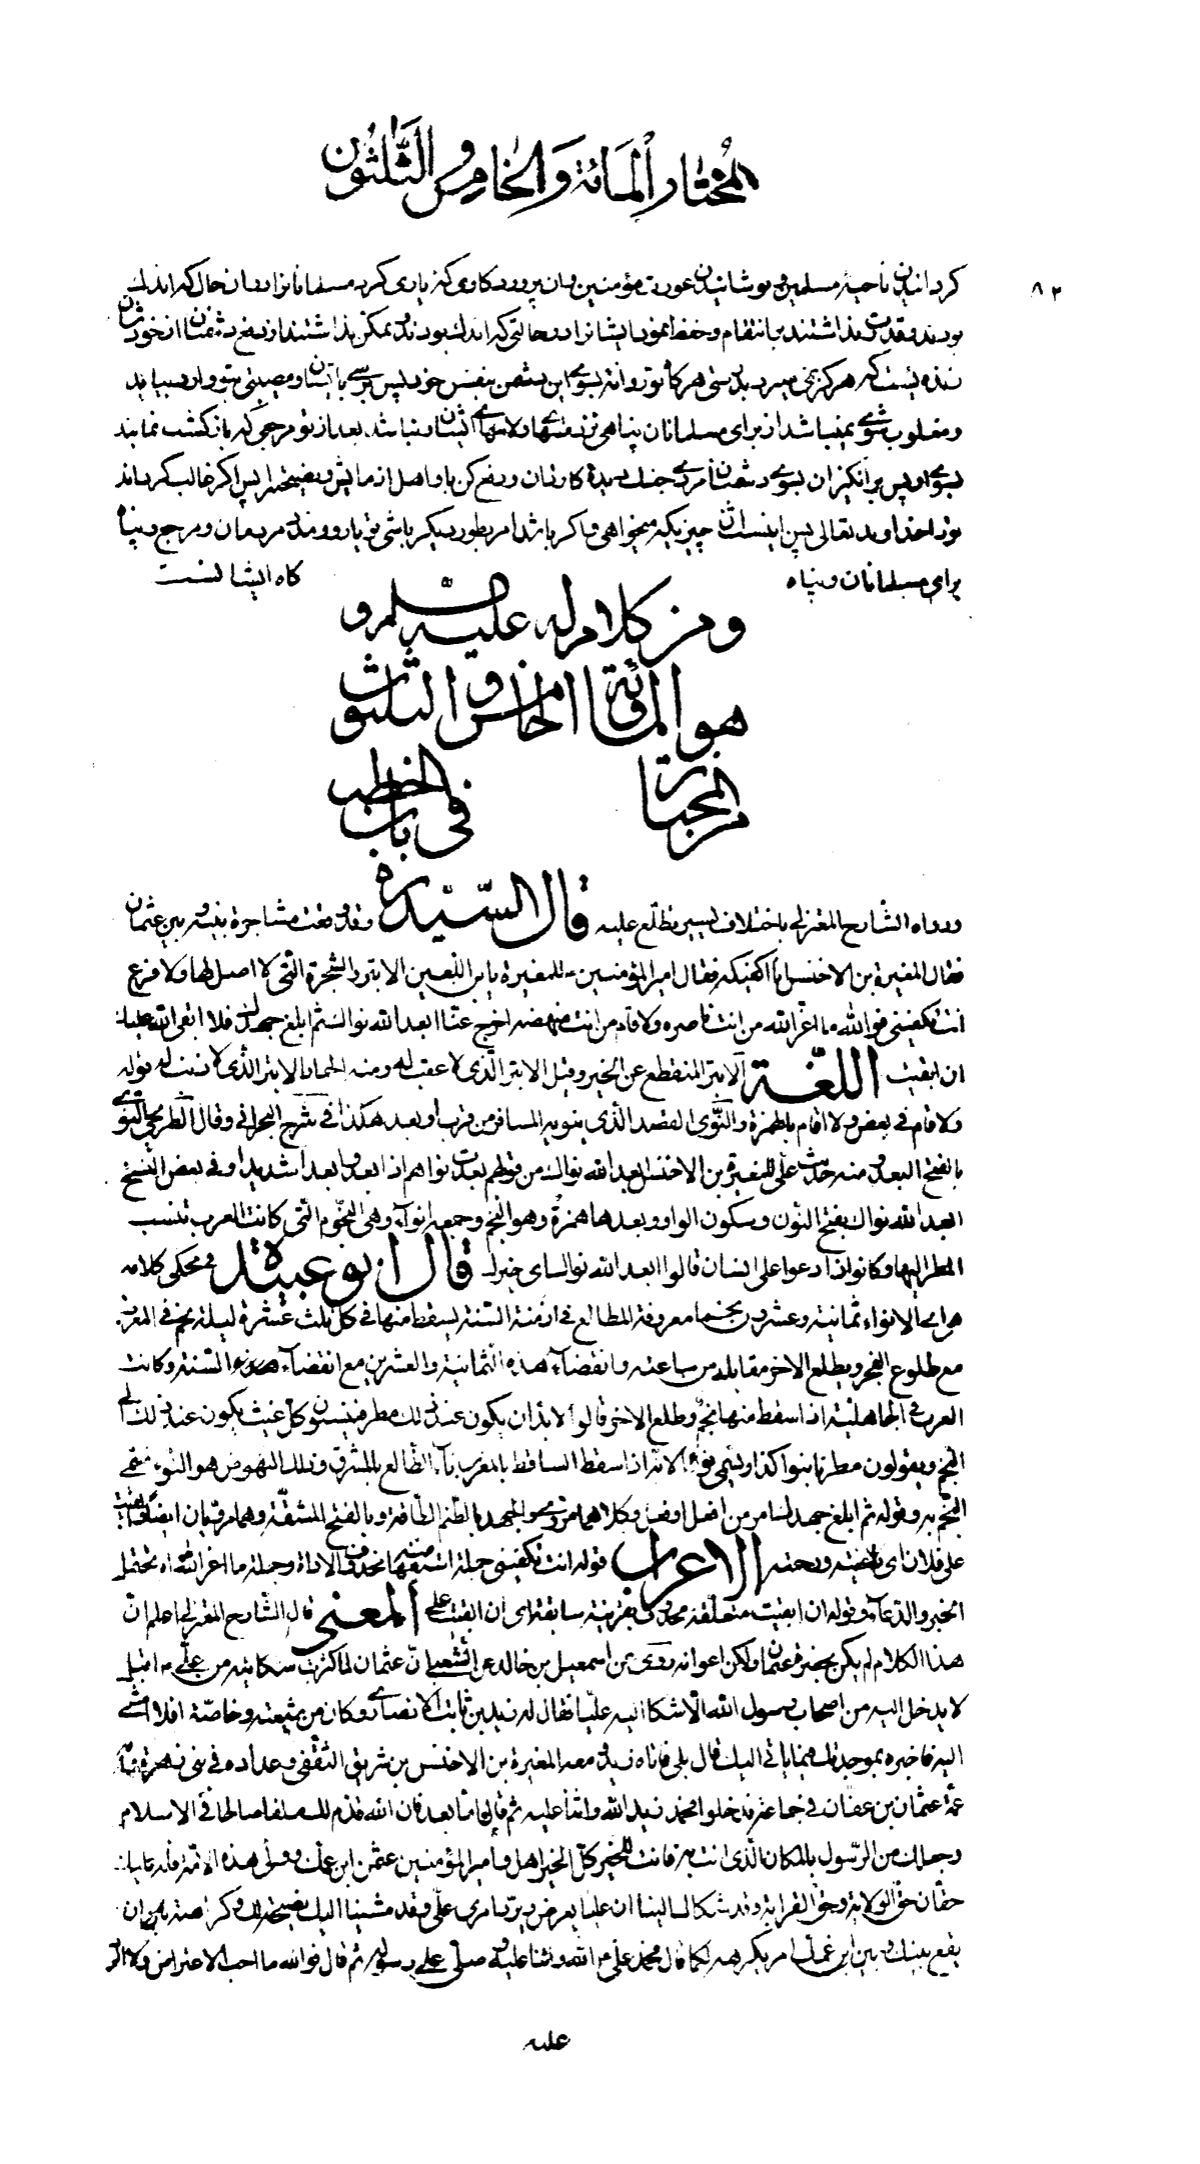 المختار المائة والخامس و الثلثون
٨٢
كردانيدن ناحيهٔ مسلمين و پوشانيدن عورت مؤمنين و ان پروردكاری كه ياری كرد مسلمانانرا در ان حال كه اندك
بودند و قدرت نداشتند بر انتقام و حفظ نمود ايشانرا در حالتی كه اندك بودند و تمكن نداشتند از دفع دشمنان از خودشان
زنده‌ايست كه هركز نمی ميرد بدرستی هركاه تو روانه بسوی اين دشمن بنفس خود پس برسی با ايشان و مصيبتی بتو وارد بيايد
و مغلوب شوی نميباشد از برای مسلمانان پناهی نزد منتهای ولايتهای ايشان و نباشد بعد از تو مرجعی كه بازكشت نمايند
بسوی او پس برانكيزان بسوی دشمنان مردی جنك ديده كاردان و دفع كن با او اهل ازمايش و نصيحترا پس اكر غالب كرداند
تو را خداوند تعالی پس اينست ان چيزيكه ميخواهی و اكر باشد امر بطور ديكر باشی تو يار و ومدد مردمان و مرجع و پناه
برای مسلمانان و پناه كاه ايشانست
و من كلام له عليه السلم و
هو المائة و الخامس و الثلثون
من المختار فی باب الخطب
و رواه الشارح المعتزلی باختلاف يسير تطلع عليه قال السيد ره و قد وقعت مشاجرة بينه و بين عثمان
فقال المغيرة بن الاخنس انا اكفيكه فقال امير المؤمنين ع للمغيرة يا بن اللعين الابتر و الشجرة التی لا اصل لها و لا فرع
انت تكفينی فوالله ما اعز الله من انت ناصره و لا قام من انت منهضه اخرج عنا ابعد الله نواك ثم ابلغ جهدك فلا ابقی الله عليك
ان ابقيت اللغة الابتر المنقطع عن الخير و قيل الابتر الذی لا عقب له و منه الحمار الابتر الذی لا ذنب له قوله
و لا قام فی بعض و لا اقام بالهمزة و النوی القصد الذی ينويه المسافر من قرب او بعد هكذا فی شرح البحرانی و قال الطريحی النوی
بالفتح البعد و منه حديث علی للمغيرة بن الاخنس ابعد الله نواك من قولهم بعدت نواهم اذا بعدوا بعدا شديدا و فی بعض النسخ
ابعد الله نواك بفتح النون و سكون الواو و بعدها همزة و هو النجم و جمعه انواء و هی النجوم التی كانت العرب تنسب
المطر اليها و كانوا اذا دعوا علی انسان قالوا ابعد الله نواك ای خيرك قال ابو عبيدة فی محكی كلامه
هی ای الانواء ثمانية و عشرون نجما معروفة المطالع فی ازمنة السنة يسقط منها فی كل ثلث عشرة ليلة نجم فی المغرب
مع طلوع الفجر و يطلع الاخر مقابله من ساعته و انقضاء هذه الثمانية و العشرين مع انقضاء السنة و كانت
العرب فی الجاهلية اذا سقط منها نجم و طلع الاخر قالوا لا بد ان يكون عند ذلك مطر فينسبون كل غيث يكون عند ذلك الی
النجم و يقولون مطرنا بنوء كذا و يسمی نوءا لانه اذا سقط الساقط بالمغرب ناء الطالع بالمشرق و ذلك النهوض هو النوء فسمی
النجم به و قوله ثم ابلغ جهدك امر من و كلاهما مروی و الجهد بالضم الطاقة و بالفتح المشقة و هما مرويان ايضا و ابقيت
علی فلان ای راعيته و رحمته الاعراب قوله انت تكفينی جملة استفهامية محذوف الاداة و جملة ما اعز الله اه تحتمل
الخبر و الدعاء و قوله ان ابقيت متعلقه محذوف بقرينة سابقة ای ان ابقيت علی المعنی قال الشارح المعتزلی اعلم ان
هذا الكلام لم يكن بحضرة عثمان و لكن عوانة روی عن اسمعيل بن خالد عن الشعبی ان عثمان لما كثرت شكايته من علی ع اقبل
لا يدخل اليه من اصحاب رسول الله الا شكا اليه عليا فقال له زيد بن ثابت الانصاری و كان من شيعته و خاصته افلا امشی
اليه فاخبره بموجدتك فيما ياتی اليك قال بلی فاتاه زيد و معه المغيرة بن الاخنس بن شريق الثقفی و عداده فی بنی زهرة
عمة عثمان بن عفان فی جماعة فدخلوا فحمد زيد الله و اثنی عليه ثم قال اما بعد فان الله قدم لك سلفا صالحا فی الاسلام
و جعلك من الرسول بالمكان الذی انت به فانت للخير كل الخير اهل و امير المؤمنين عثمن ابن عمك و والی هذه الامة فله عليك
حقان حق الولاية و حق القرابة و قد شكا الينا ان عليا يعرض و يرد امری علی و قد مشينا اليك نصيحة لك و كراهية ان
يقع بينك و بين ابن عمك امر نكرهه لكما قال فحمد علی ع الله و اثنا عليه و صلی علی رسوله ثم قال فوالله ما احب الاعتراض و لا الرد
عليه